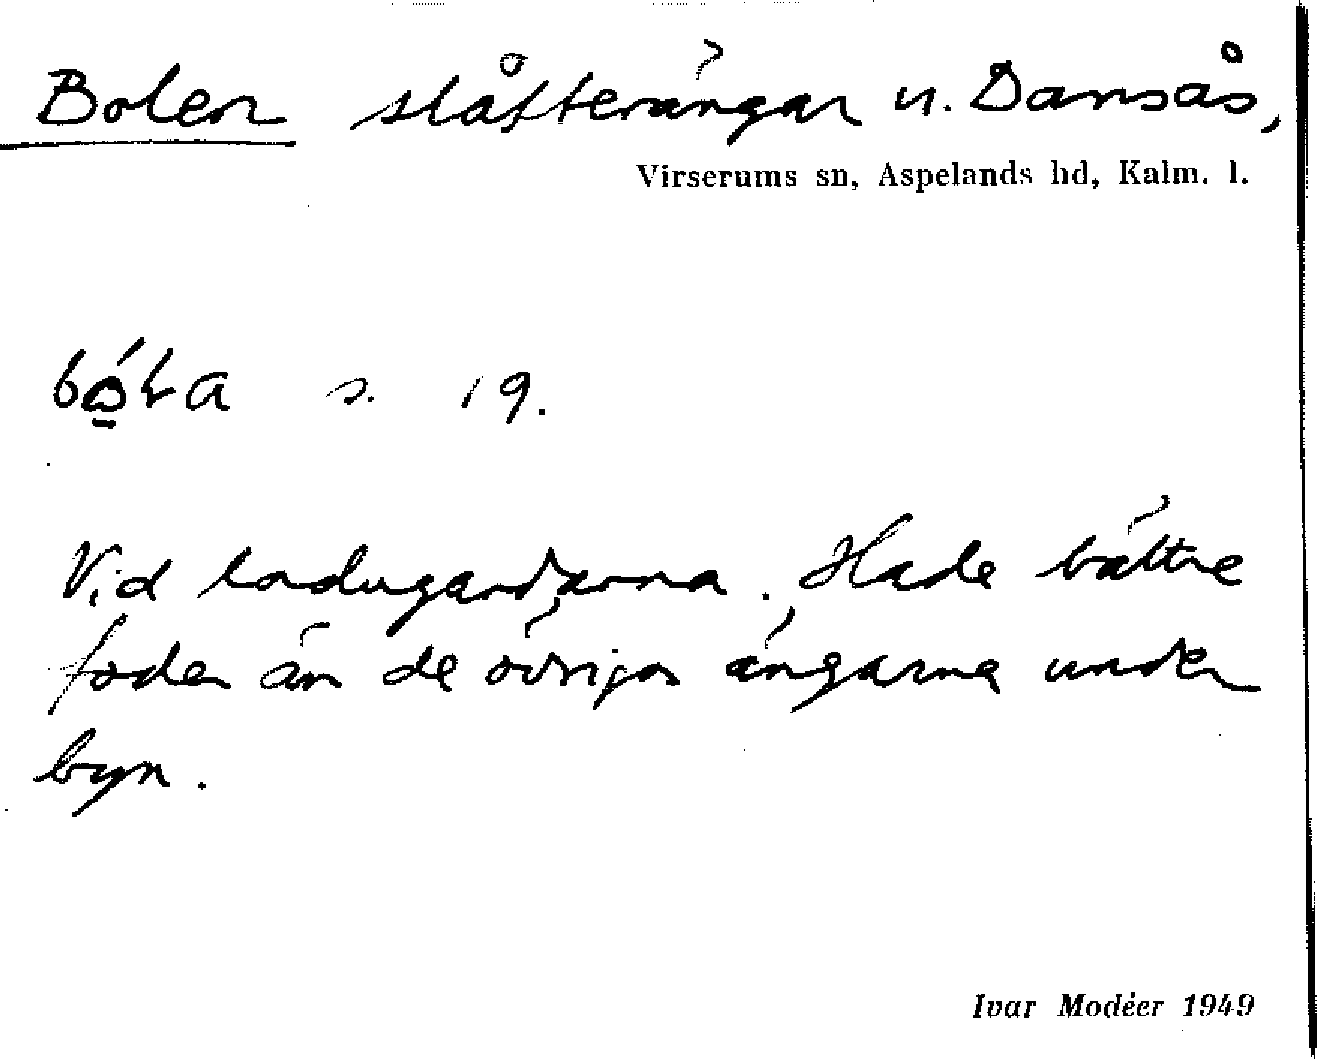 Bolen slåtterängar u. Dansås,
Virserums sn, Aspelands hd, Kalm. l.
s. 19.
Vid ladugårdarna. Hade bättre
foder än de övriga ängarna under
byn.
Ivar Modéer 1949